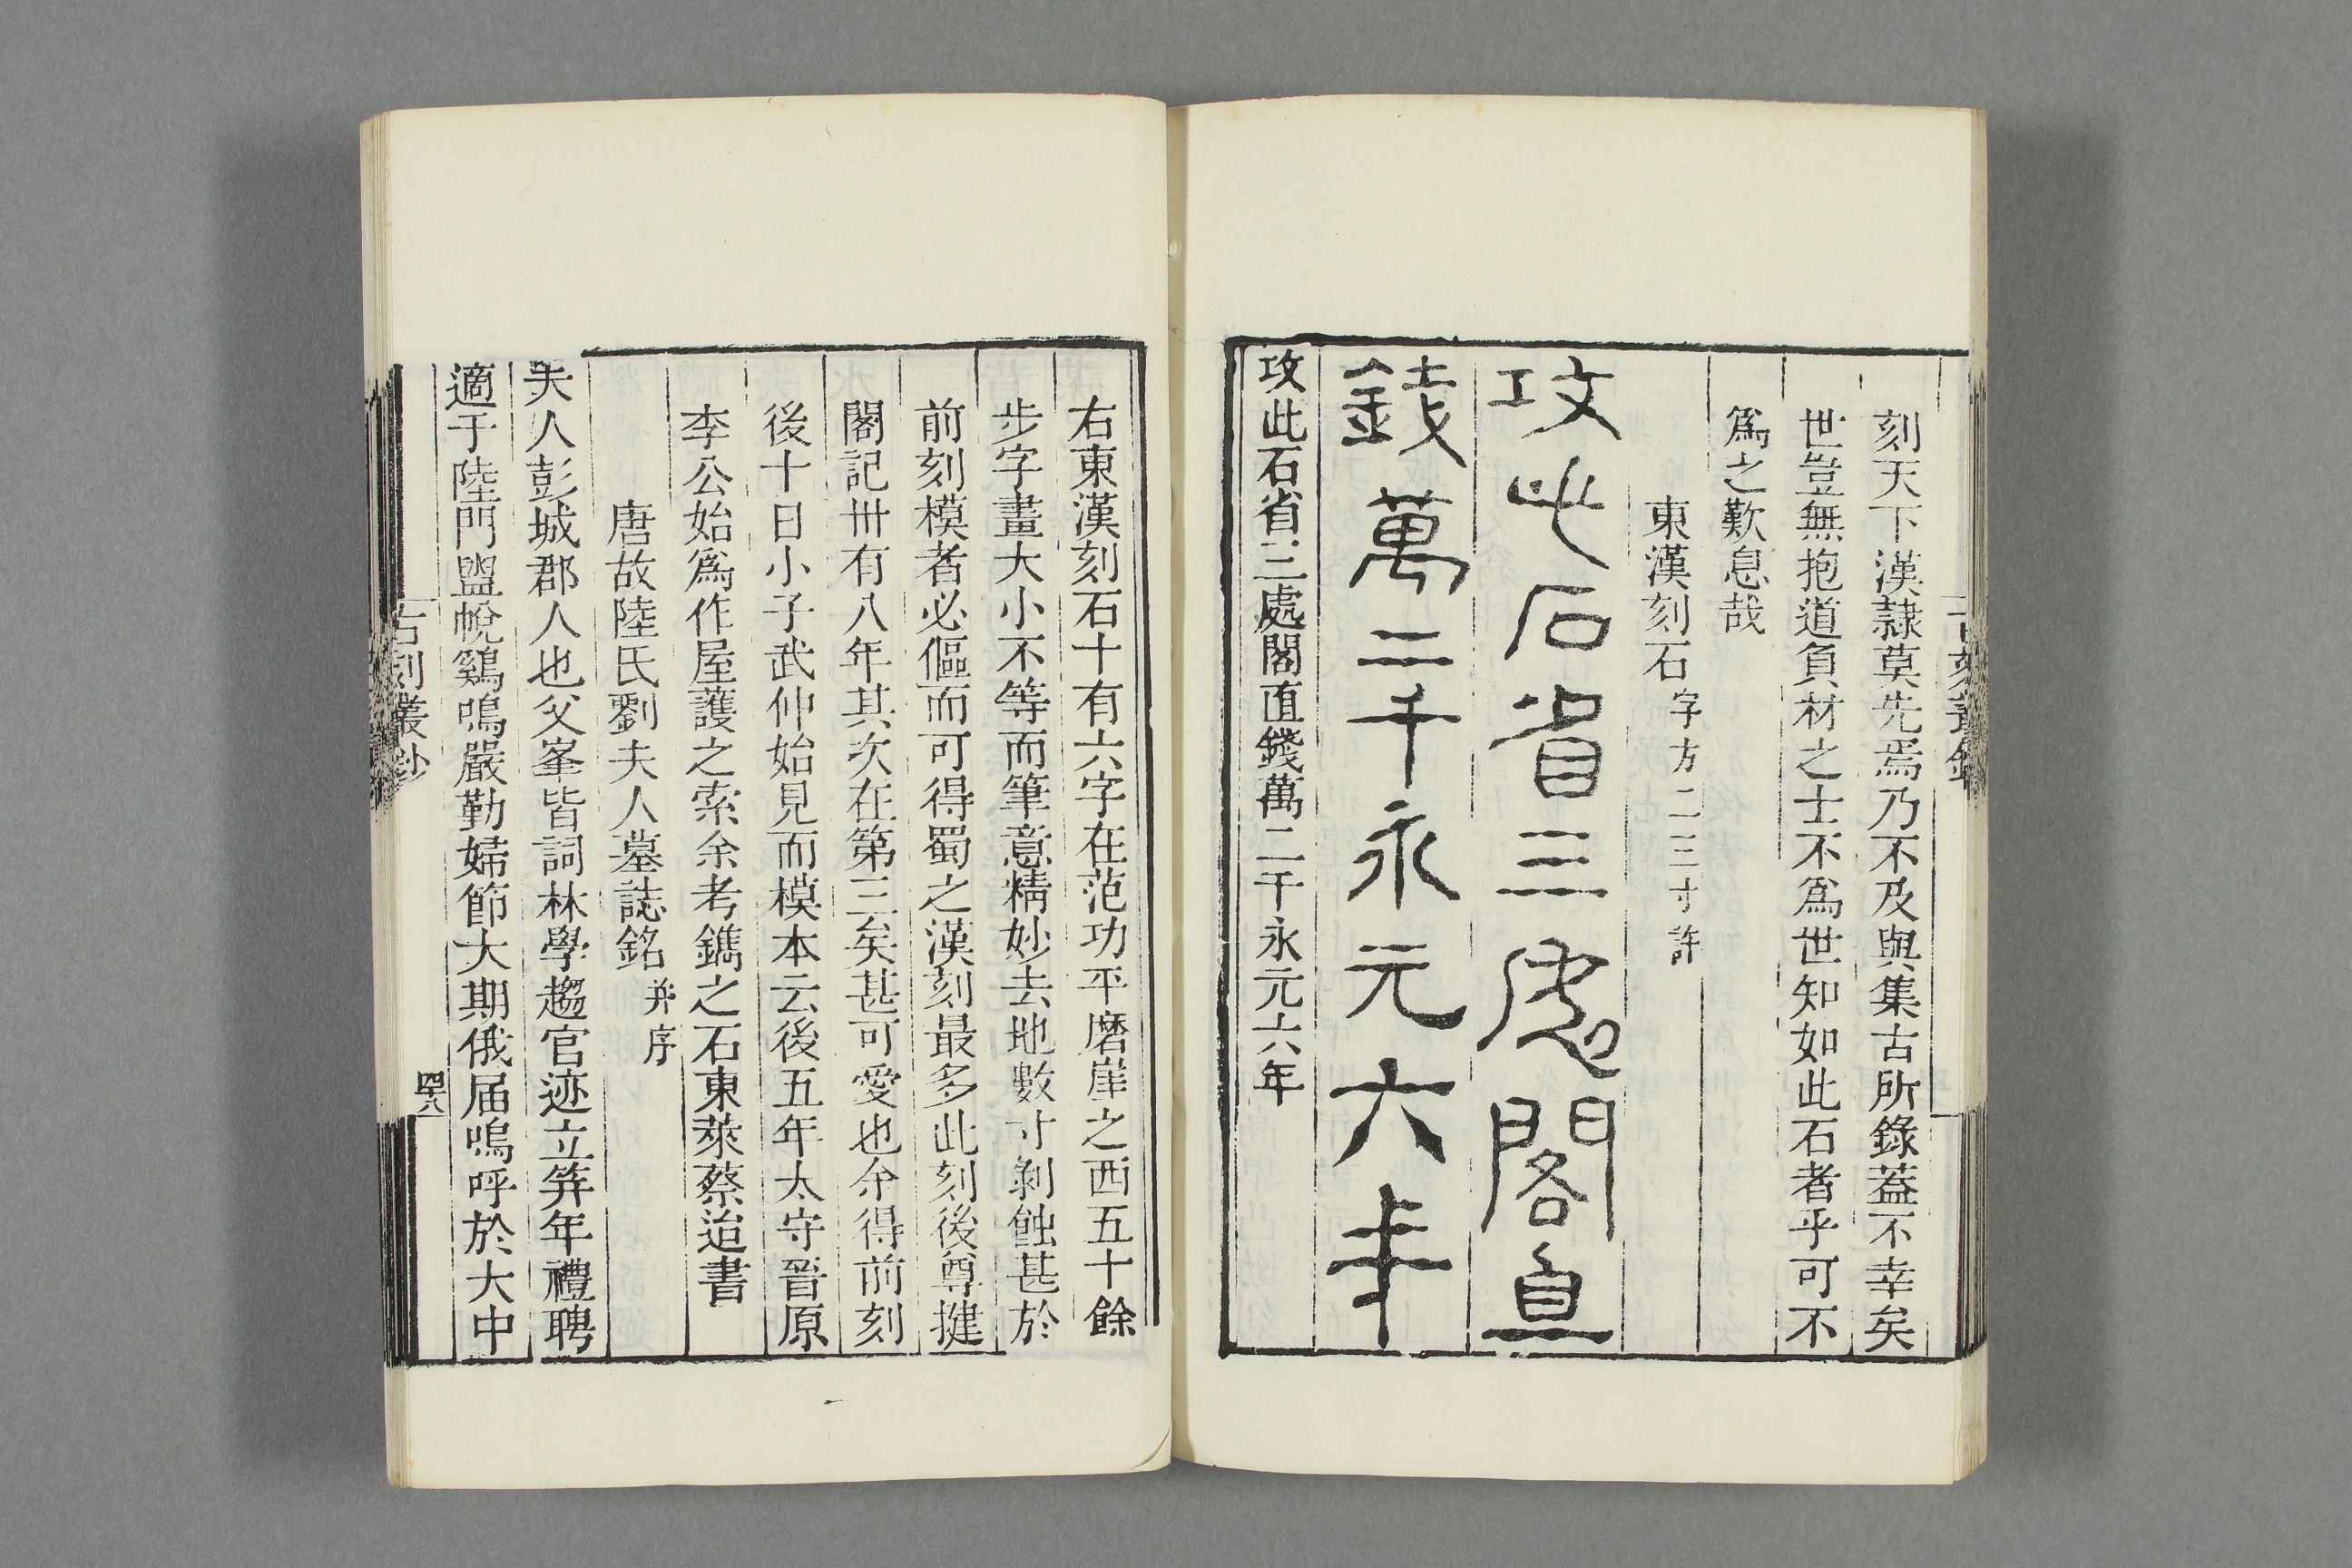 刻天下漢隷莫先焉乃不及與集古所錄蓋不幸矣
世豈無抱道負材之士不為世知如此石者乎可不
爲之歎息哉
東漢刻石字方二三寸許
攻此石省三處閣直
錢萬二千永元六年
攻此石省三處閣直錢萬二千永元六年
右東漢刻石十有六字在范功平磨崖之西五十餘
步字畫大小不等而筆意精妙去地數寸剝蝕甚於
前刻模者必傴而可得蜀之漢刻最多此刻後尊揵
閣記卅有八年其次在第三矣甚可愛也余得前刻
後十日小子武仲始見而模本云後五年太守晉原
李公始爲作屋護之索余考鐫之石東萊蔡迨書
唐故陸氏劉夫人墓誌銘并序
夫人彭城郡人也父峯皆詞林學趨官迹立筓年禮聘
適于陸門盥帨鷄鳴嚴勤婦節大期俄届嗚呼於大中
古刻叢鈔
四十八